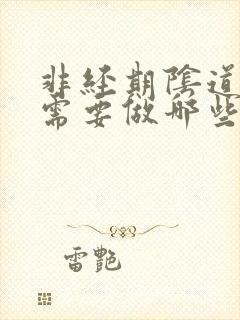 非經期陰道
需要做哪些
雷艷